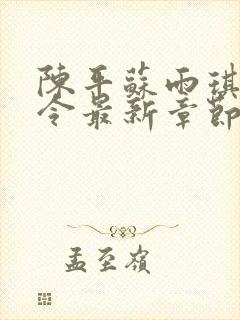 陳平蘇雨琪
令最新章節
孟至嶺